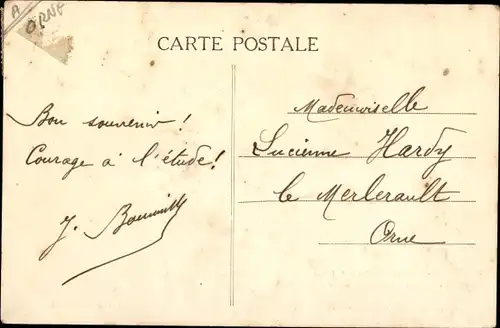 A
ORNE
CARTE POSTALE
Bon souvenir !
Courage à l'étude !
J.
Mademoiselle
Lucienne Hardy
le Merlerault
Orne